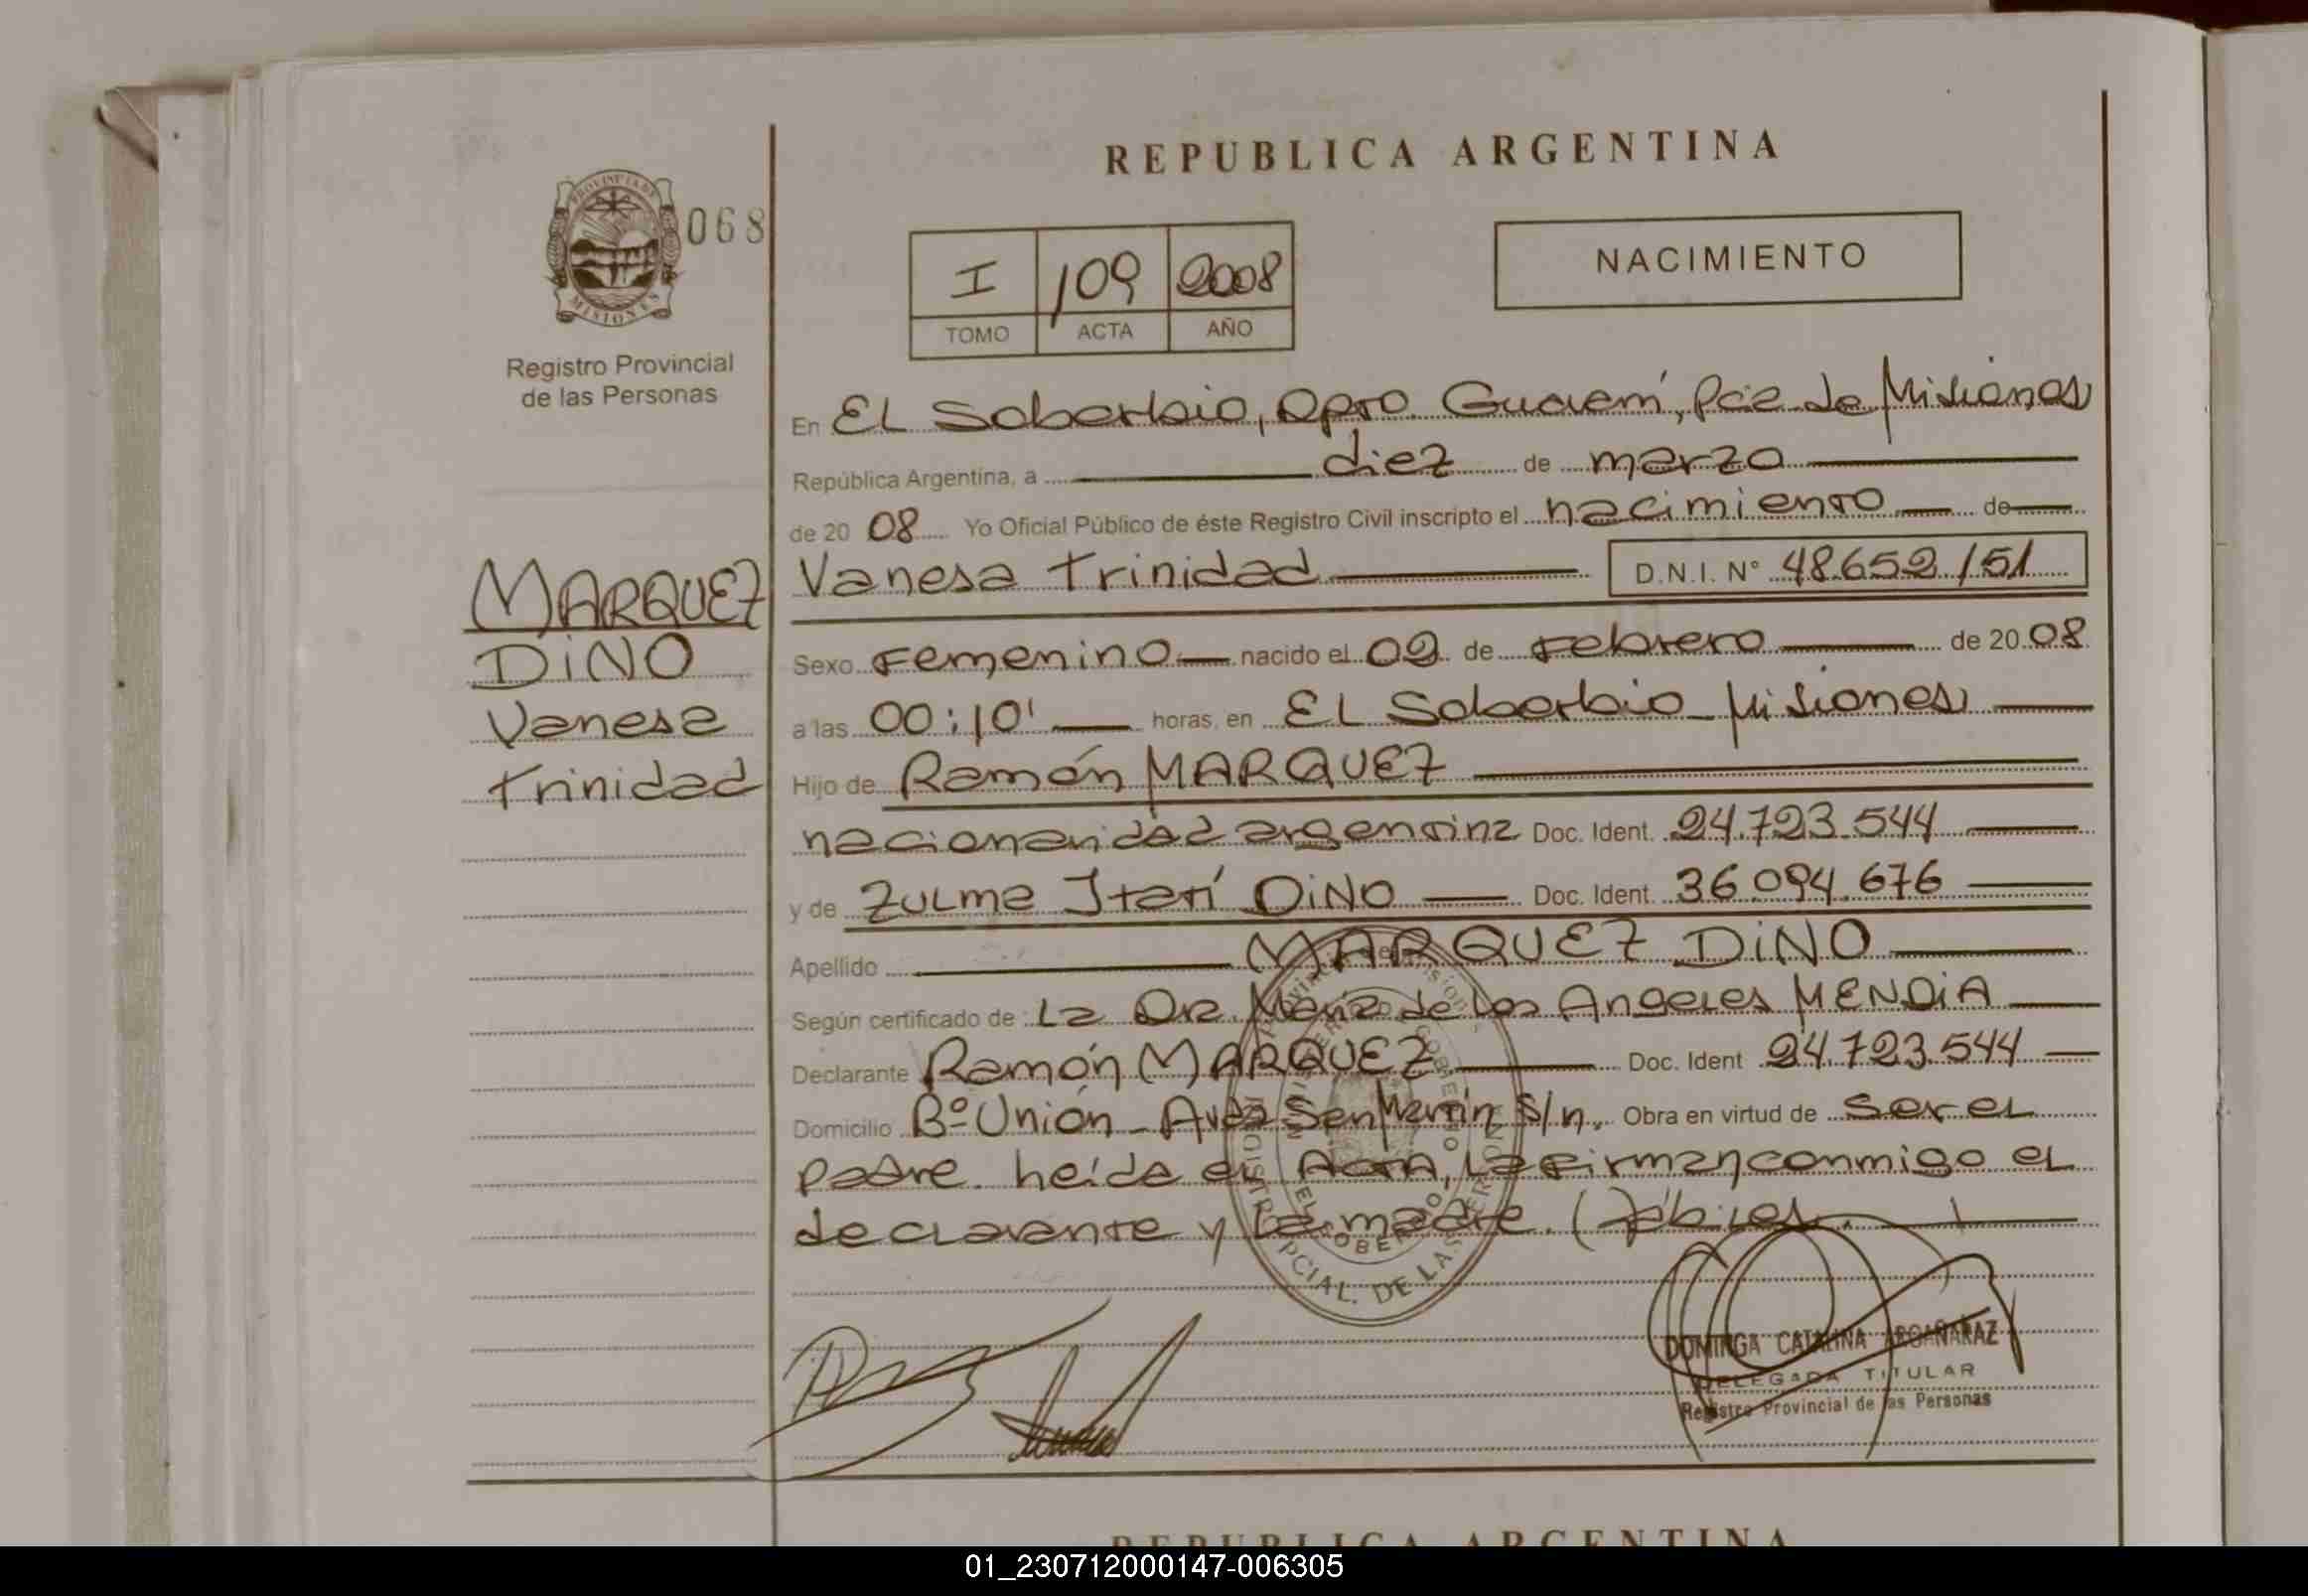 REPUBLICA ARGENTINA
PROVINCIA DE
MISIONES
068
Registro Provincial
de las Personas
I 109 2008
TOMO ACTA AÑO
NACIMIENTO
En EL Soberbio, Dpto. Guaraní, Pcia de Misiones
República Argentina, a diez de marzo
de 20 08 Yo Oficial Público de éste Registro Civil inscripto el nacimiento de
Vanesa Trinidad D.N.I. N° 48.652.151
MARQUEZ
DINO
Vanesa
Trinidad
Sexo Femenino nacido el 09 de Febrero de 20 08
a las 00:10' horas, en EL Soberbio - Misiones
Hijo de Ramón MARQUEZ
nacionalidad argentina Doc. Ident. 24.723.544
y de Zulma Itatí DINO Doc. Ident. 36.094.676
Apellido MARQUEZ DINO
Según certificado de La Dra. María de Los Angeles MENDIA
Declarante Ramón MARQUEZ Doc. Ident 24.723.544
Domicilio Bº Unión - Avda San Martín S/n. Obra en virtud de ser el
padre. Leída el Acta, la firman conmigo el
declarante y la madre.
DOMINGA CATALINA ARGAÑARAZ
DELEGADA TITULAR
Registro Provincial de las Personas
REPUBLICA ARGENTINA
01_230712000147-006305